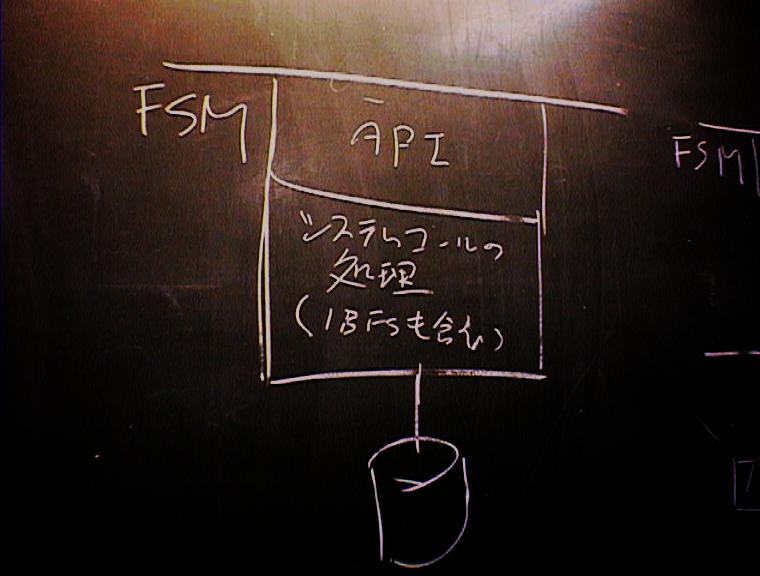 FSM
API
システムコールの
処理
(旧FSも含む)
FSM